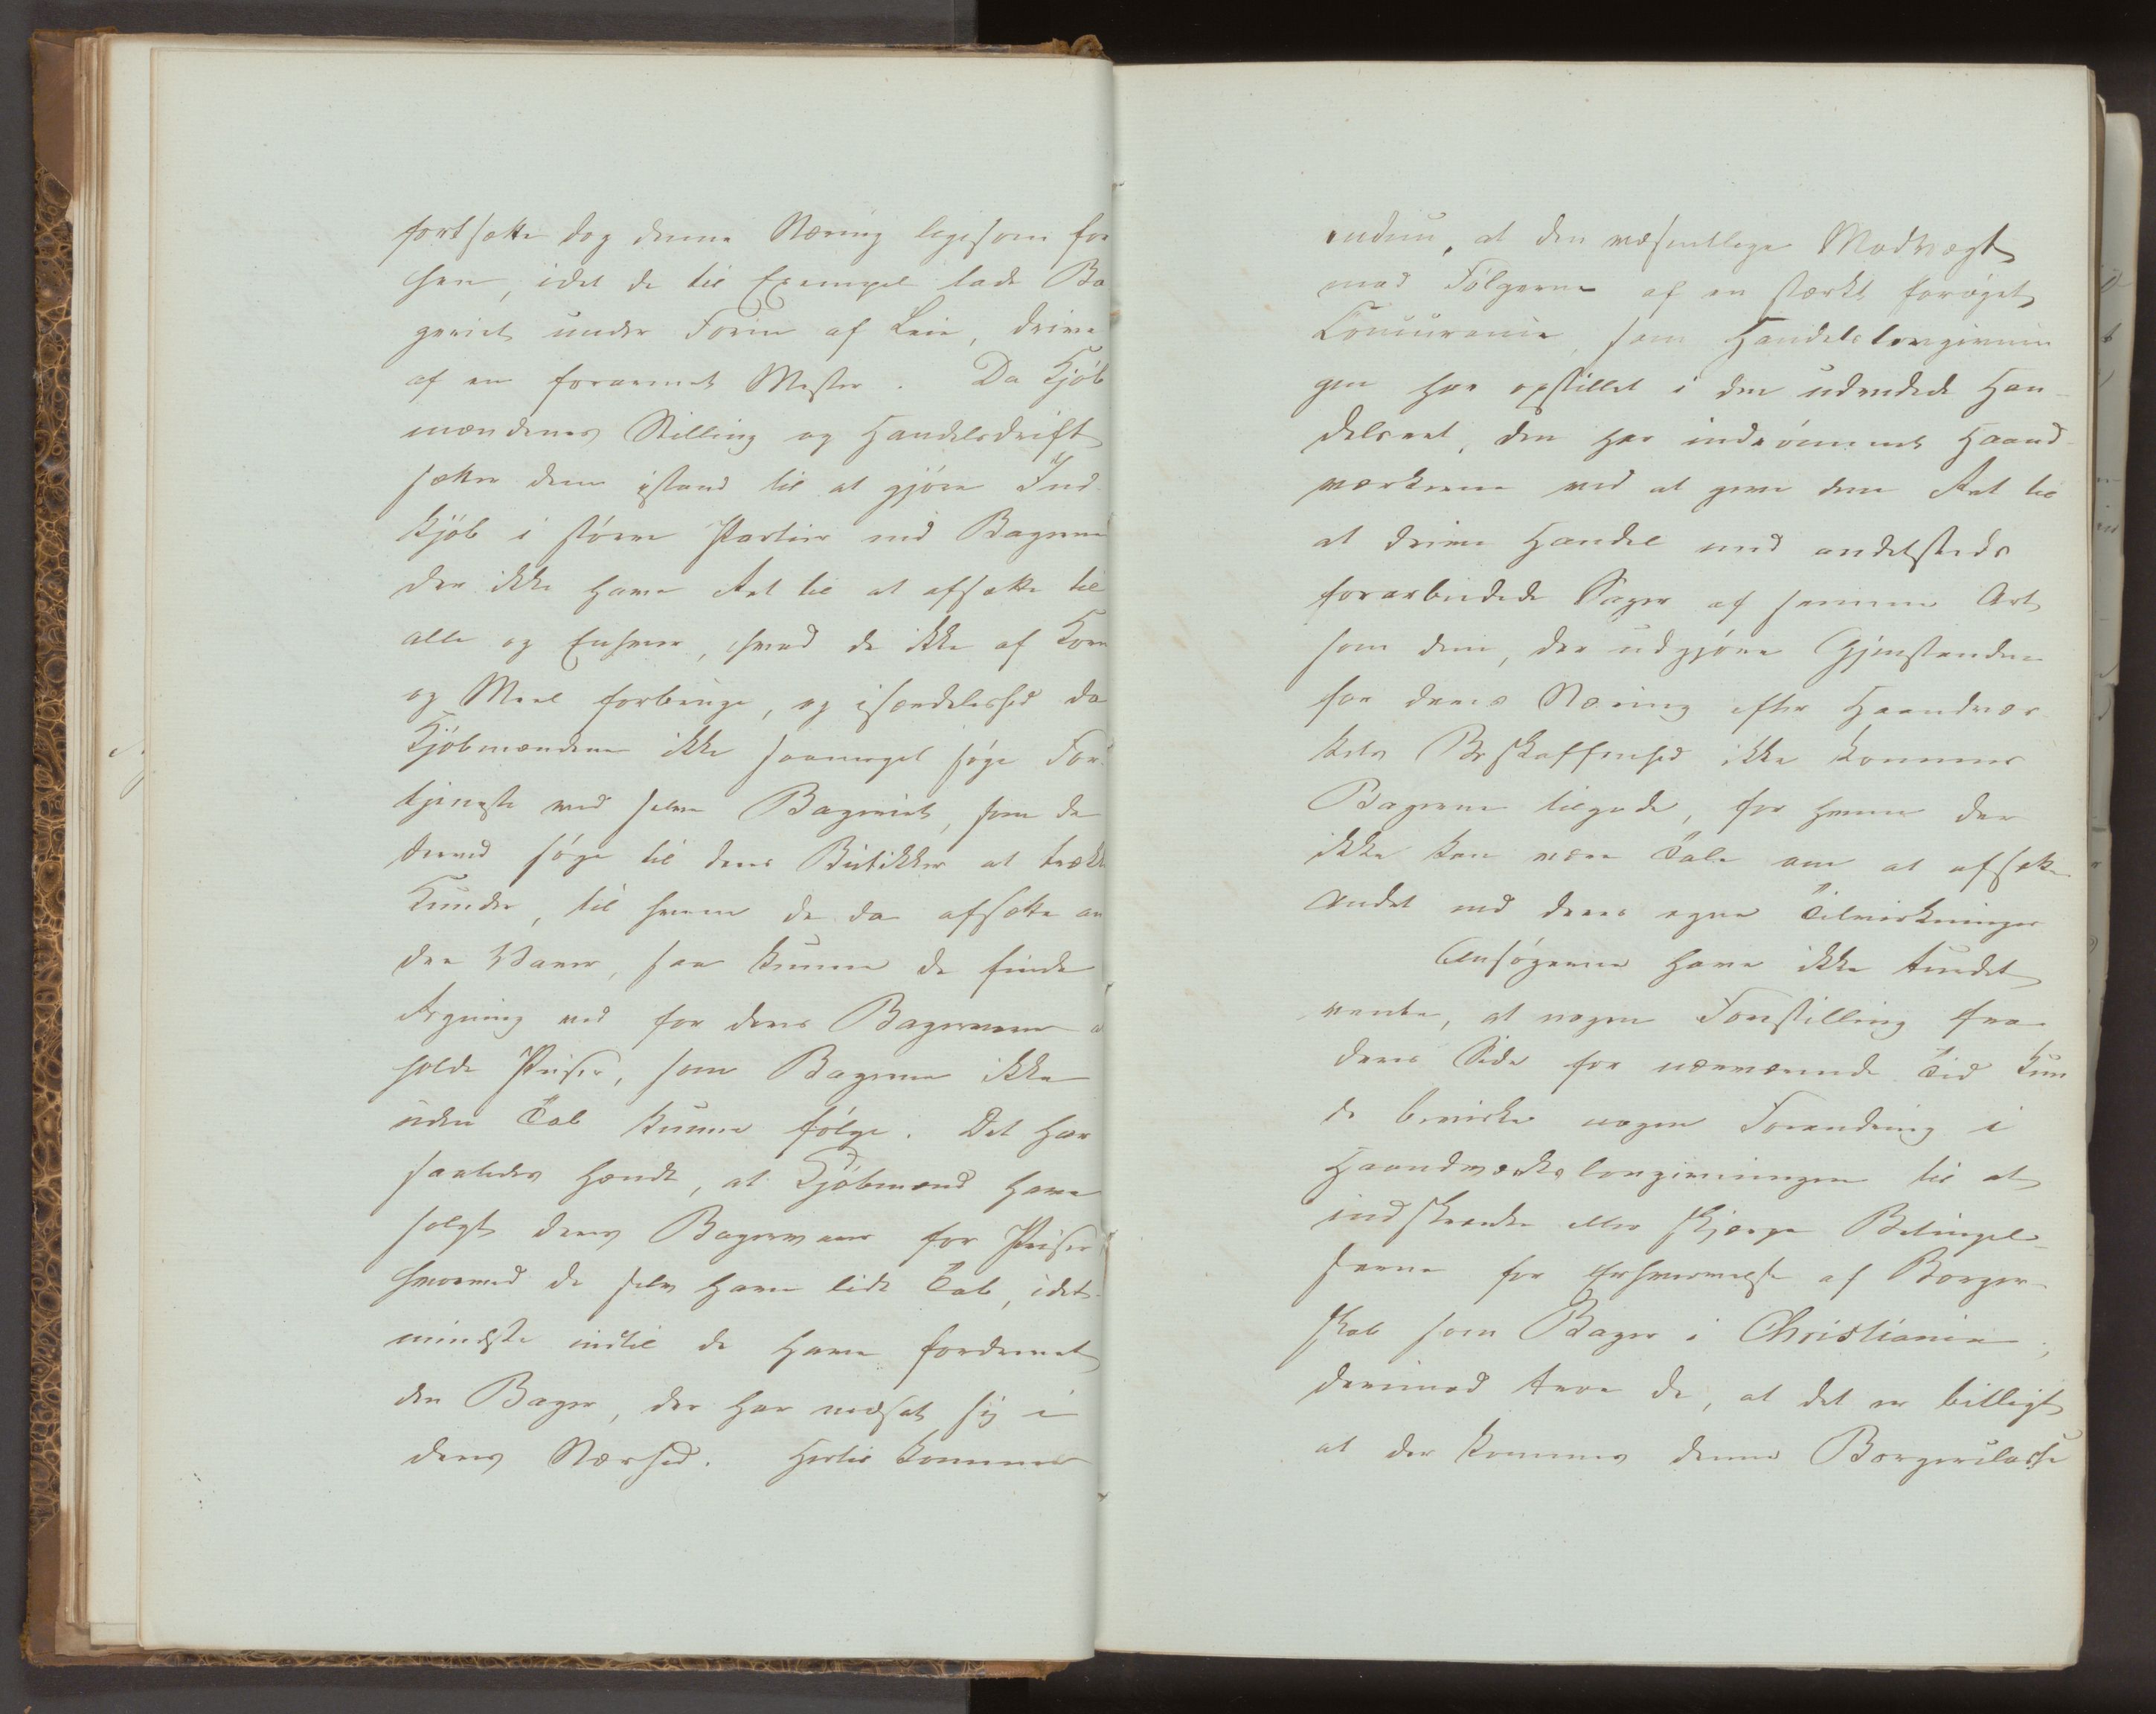 fortsætte dog denne Næring ligesom før
hen, idet de til Exempel lade Ba
geriet under Form af Leie, drive
af en forarmet Mester. Da Kjöb
mændenes Stilling og Handelsdrift
sætter dem istand til at gjöre Ind
kjöb i störrre Partier end Bagerne
der ikke have Ret til at afsætte til
alle og Enhver, hvad de ikke af Korn
og Meel forbruge, og isærdeleshed da
Kjöbmændene ikke saameget söge For
tjeneste ved selve Bageriet, som de
derved söge til deres Butikker at trække
Kunder, til hvem de da afsætte an
dre Varer, saa kunne de finde
Regning ved for deres Bagervarer a
holde Priser, som Bagerne ikke
uden Tab kunne fölge. Det har
saaledes hændt, at Kjöbmænd have
solgt deres Bagervarer for Priser
hvorved de selv have lidt Tab, idet
mindste indtil de have fordrevet
den Bager, der har nedsat sig i
deres Nærhed. Hertil kommer
endnu, at den væsentlige Modvægt
mod Fölgerne af en stærkt foröget
Concurence, som Handelslovgivnin
gen har opstillet i den udvidede Han-
delsret, den har indrömmet Haand-
værkerne ved at give dem Ret til
at drive Handel med andetsteds
forarbeidede Sager af samme Art
som dem, der udgjöre Gjenstanden
for deres Næring efter Haandvær
kets Beskaffenhed ikke kommer
Bagerne tilgode, for hvem der
ikke kan være Tale om at afsætte
Andet end deres egne Tilvirkninger
Ansögerne have ikke turdet
vente, at nogen Forestilling fra
deres Side for nærværende Tid kun
de bevirke nogen Forandring i
Haandværkslovgivningen til at
indskrænke eller skjærpe Betingel-
serne for Erhvervelse af Borger-
skab som Bager i Christiania;
derimod troe de, at det er billigt
at der kommes denne Borgerclasse